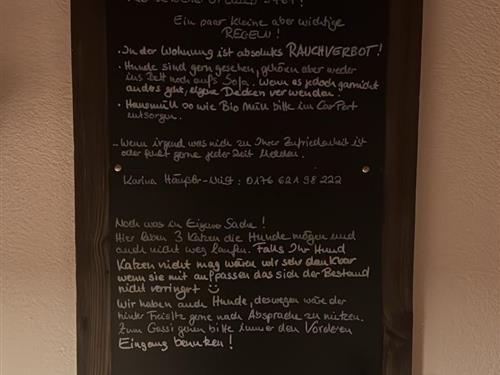 Ein paar kleine aber wichtige
REGELN!
• In der Wohnung ist absolutes RAUCHVERBOT!
• Hunde sind gern gesehen, gehören aber weder
ins Bett noch aufs Sofa. Wenn es jedoch garnicht
anders geht, eigene Decken verwenden.
• Hausmüll so wie Bio Müll bitte im CarPort
entsorgen.
Wenn irgend was nicht zu Ihrer Zufriedenheit ist
oder fehlt gerne jeder Zeit melden.
Karina : 0176 621 98 222
Noch was in Eigener Sache!
Hier leben 3 Katzen die Hunde mögen und
auch nicht weg laufen. Falls Ihr Hund
Katzen nicht mag wären wir sehr dankbar
wenn sie mit aufpassen das sich der Bestand
nicht verringert
Wir haben auch Hunde, deswegen wäre der
hintere gerne nach Absprache zu nutzen.
Zum Gassi gehen bitte immer den Vorderen
Eingang benutzen!